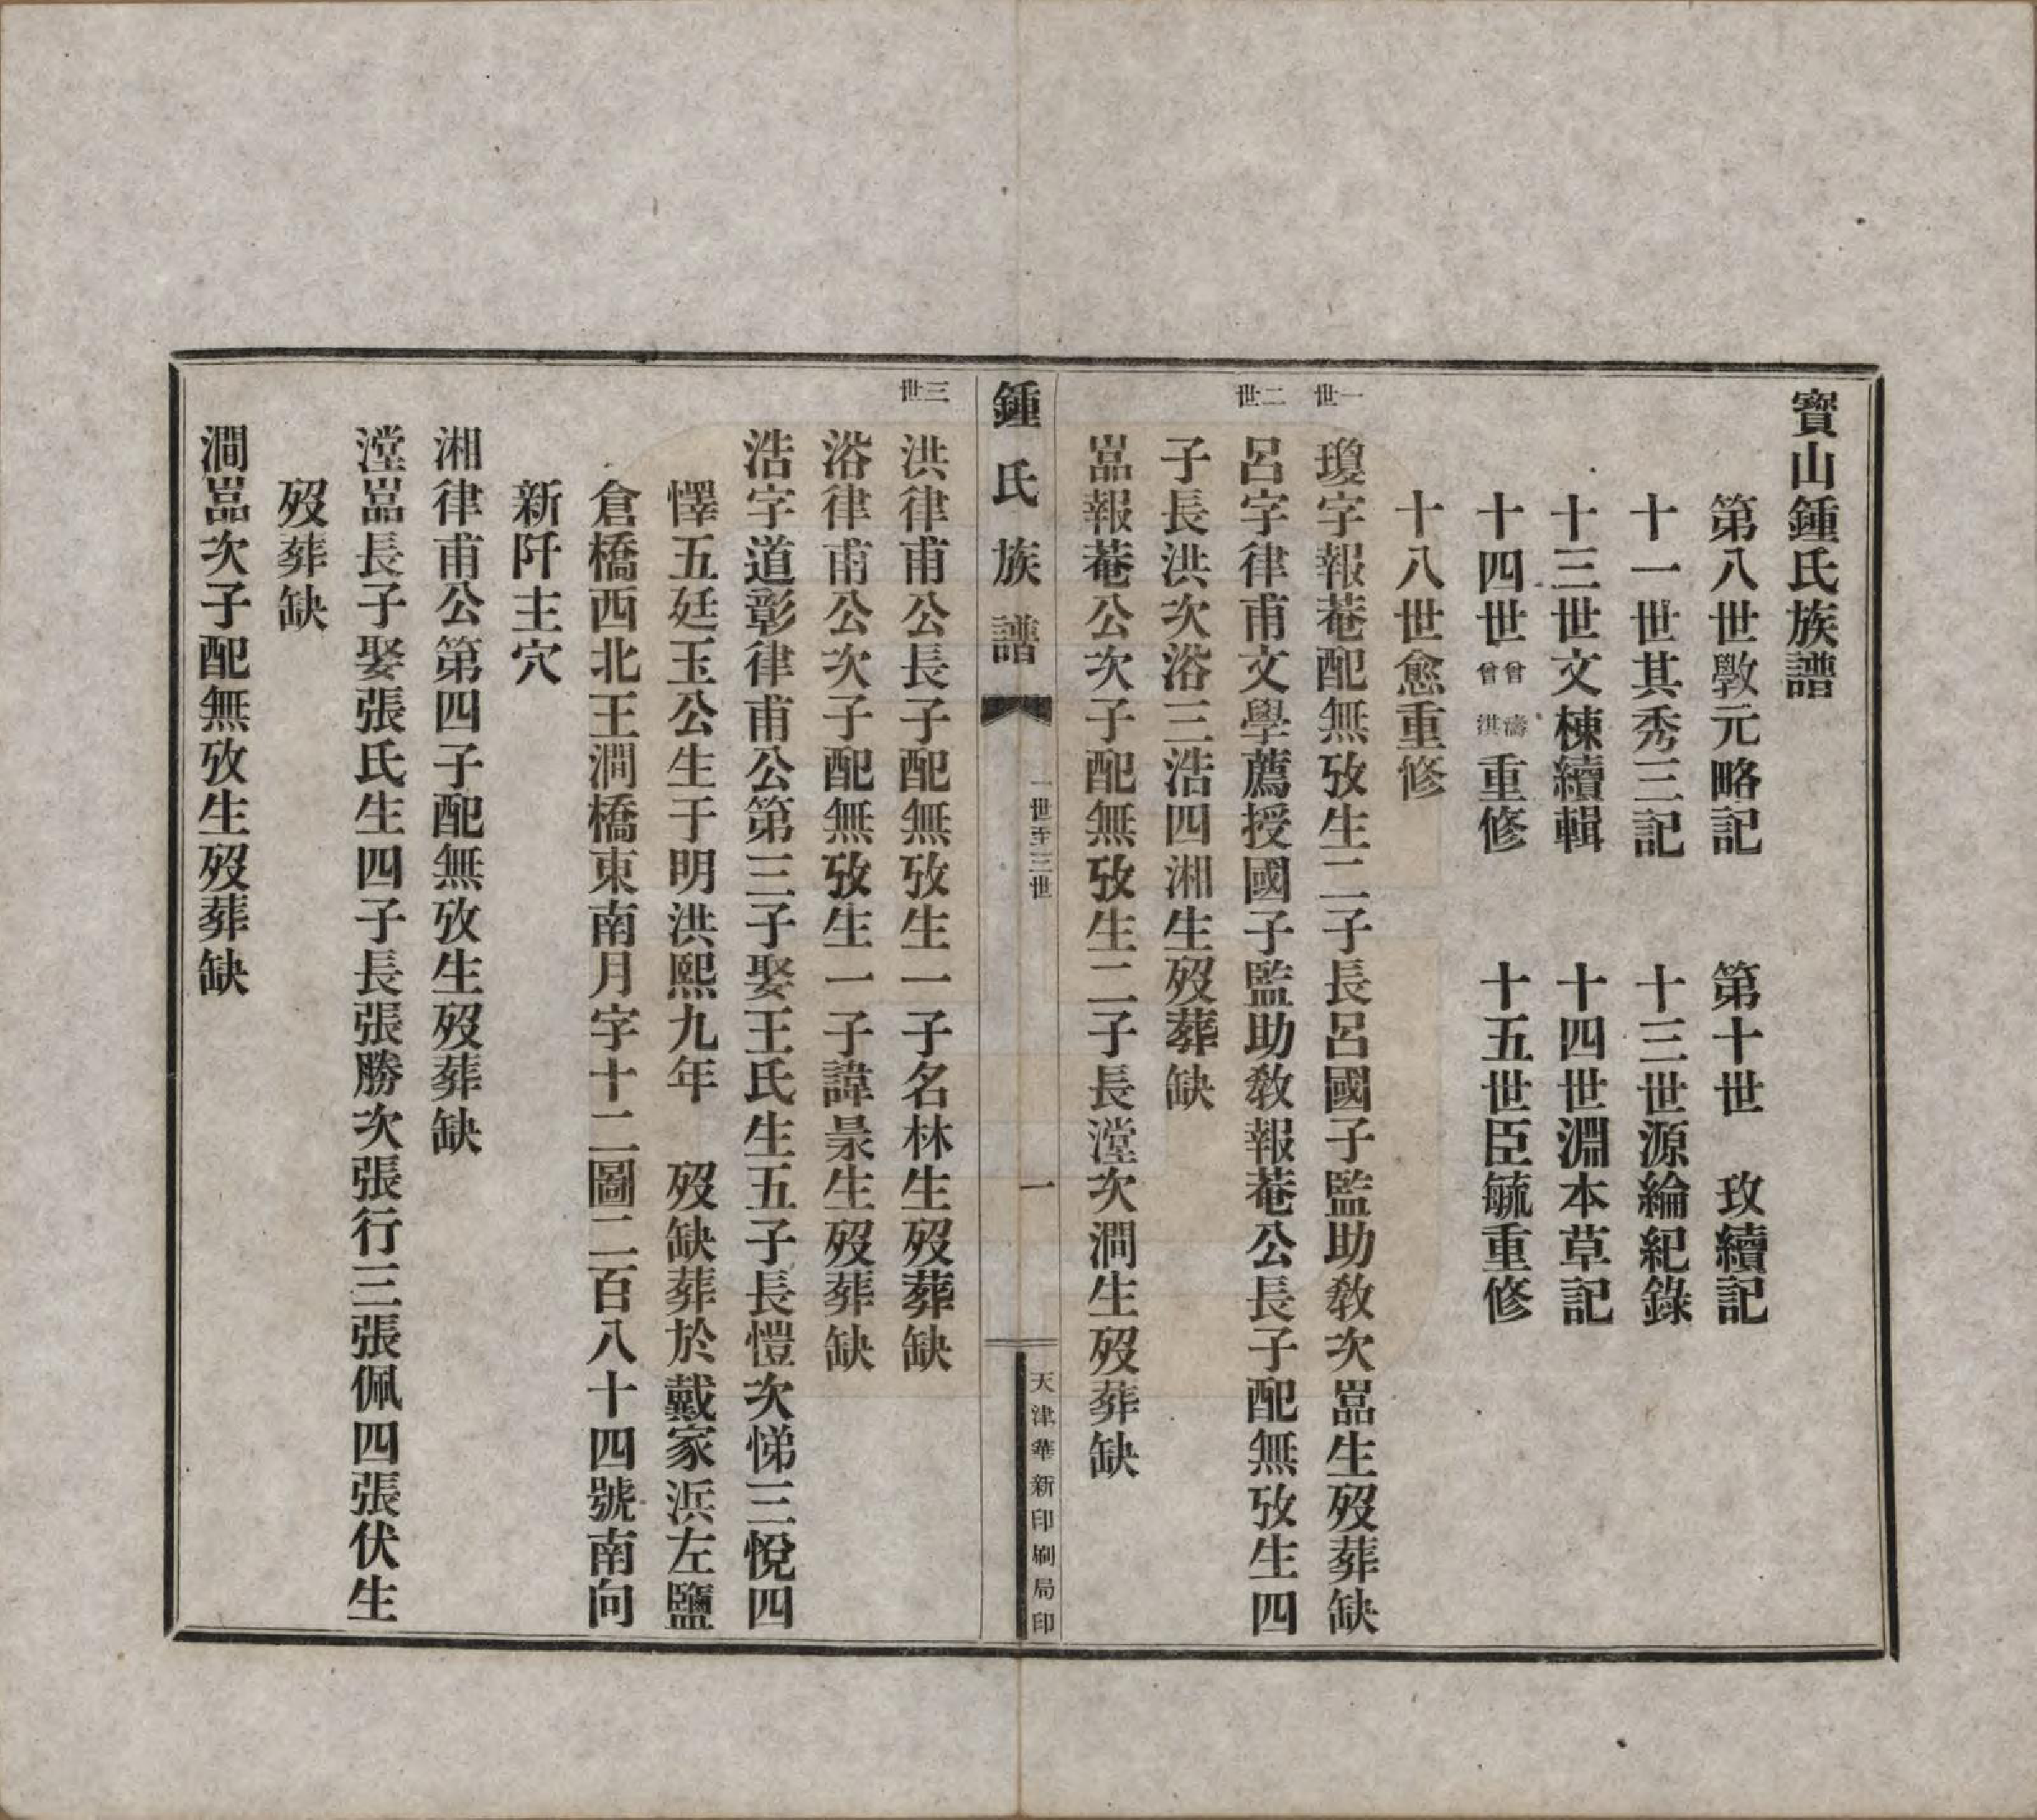 寶山鍾氏族譜
第八世斆元略記　第十世　玫續記
十一世其秀三記　十三世源綸紀錄
十三世文棟續輯　十四世淵本草記
十四世曾濤曾淇重修　十五世臣毓重修
十八世愈重修
一世
瓊字報菴配無攷生二子長呂國子監助教次嵓生歿葬缺
二世
呂字律甫文學薦授國子監助教報菴公長子配無攷生四
子長洪次浴三浩四湘生歿葬缺
嵓報菴公次子配無攷生二子長漟次澗生歿葬缺
鍾氏族譜
一世至三世
一
天津華新印刷局印
三世
洪律甫公長子配無攷生一子名林生歿葬缺
浴律甫公次子配無攷生一子諱杲生歿葬缺
浩字道彰律甫公第三子娶王氏生五子長愷次悌三悅四
懌五廷玉公生于明洪熙九年　歿缺葬於戴家浜左鹽
倉橋西北王澗橋東南月字十二圖二百八十四號南向
新阡主穴
湘律甫公第四子配無攷生歿葬缺
漟嵓長子娶張氏生四子長張勝次張行三張佩四張伏生
歿葬缺
澗嵓次子配無攷生歿葬缺